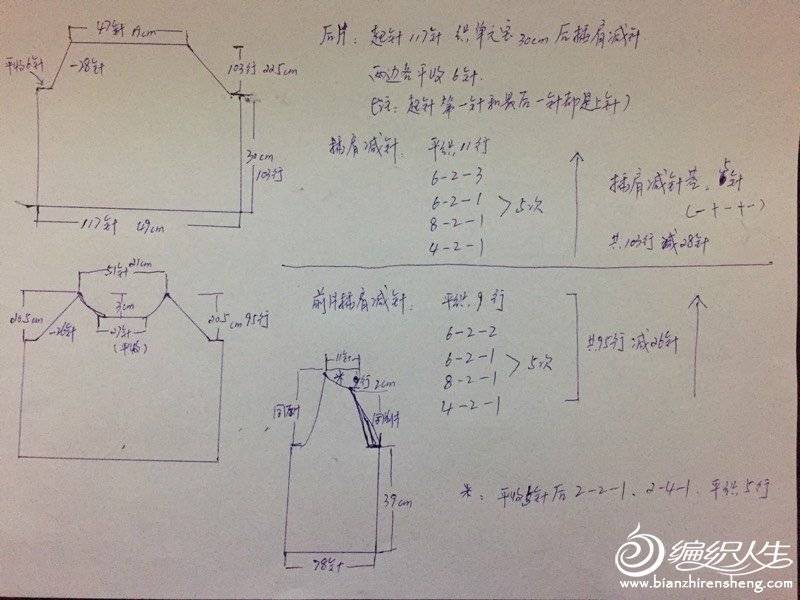 47针 19cm
平收6针
-28针
103行 22.5cm
30cm
103行
117针 49cm
后片: 起针117针 织单元宽30cm后插肩减针
两边各平收6针.
(注: 起针第一针和最后一针都是上针)
插肩减针: 平织11行
6-2-3
6-2-1
8-2-1
4-2-1
>5次
插肩减针茎. 5针
(-+-+-)
共103行减28针
51针 21cm
20.5cm
-26针
3cm
27针
(平收)
20.5cm 95行
前片插肩减针: 平织9行
6-2-2
6-2-1
8-2-1
4-2-1
>5次
共95行减26针
11针
米
行2cm
同后片
同前片
39cm
98针
米: 平收5针后2-2-1、2-4-1、平织5行
编织人生
www.bianzhirensheng.com